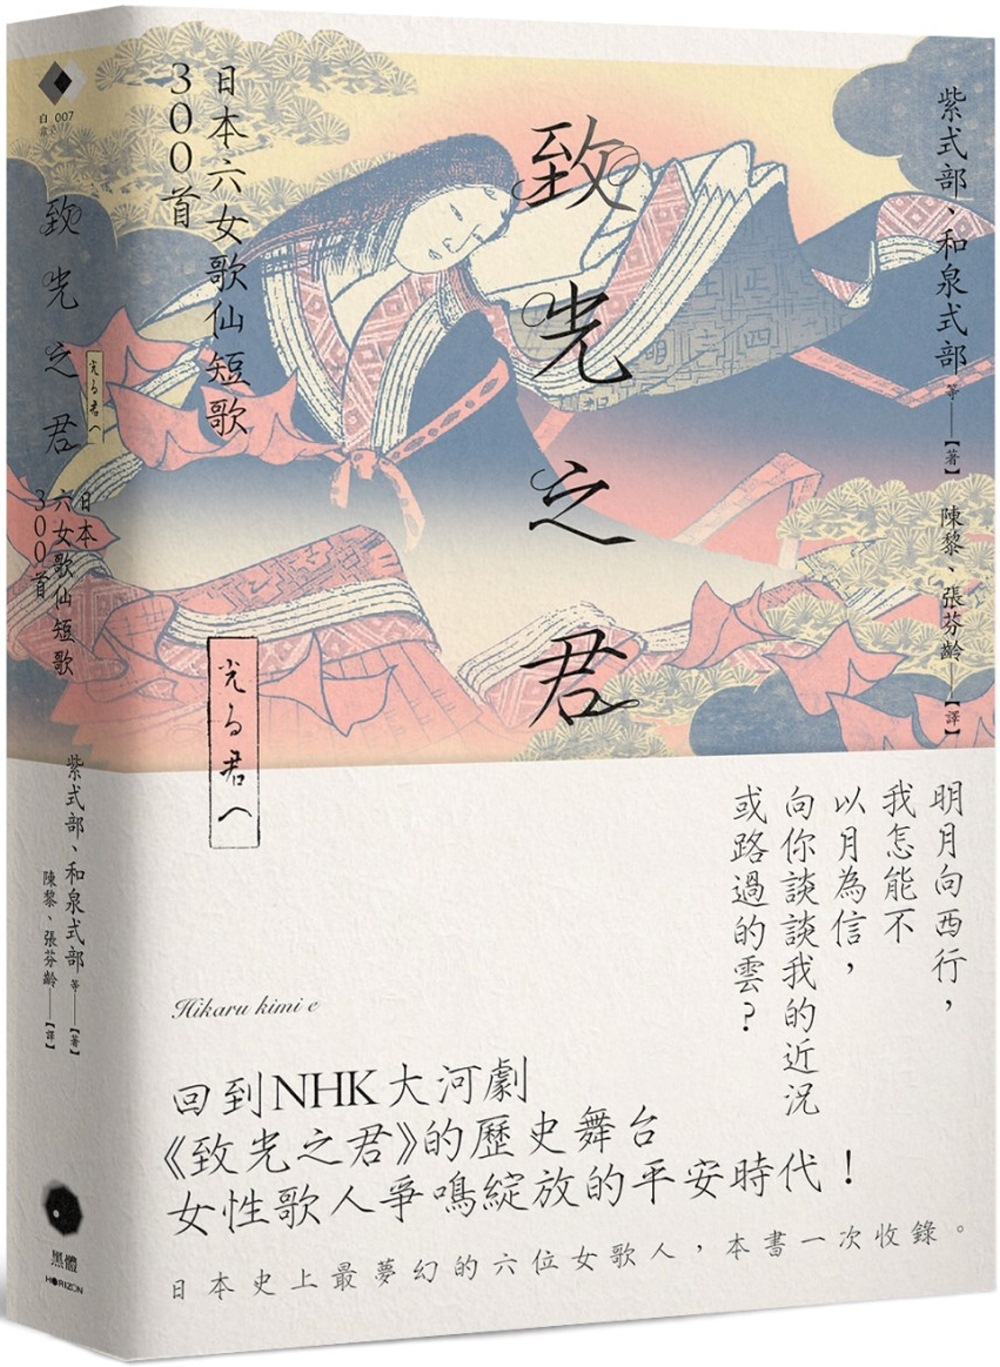 紫式部、和泉式部等──【著】
陳黎、張芬齡──【譯】
致光之君
日本六女歌仙短歌
300首
光る君へ
明月向西行，
我怎能不
以月為信，
向你談談我的近況
或路過的雲？
Hikaru kimi e
回到NHK大河劇
《致光之君》的歷史舞台
女性歌人爭鳴綻放的平安時代！
日本史上最夢幻的六位女歌人，本書一次收錄。
007
致光之君
光る君へ
日本
六女歌仙短歌
300首
紫式部、和泉式部等──【著】
陳黎、張芬齡──【譯】
黑體
HORIZON